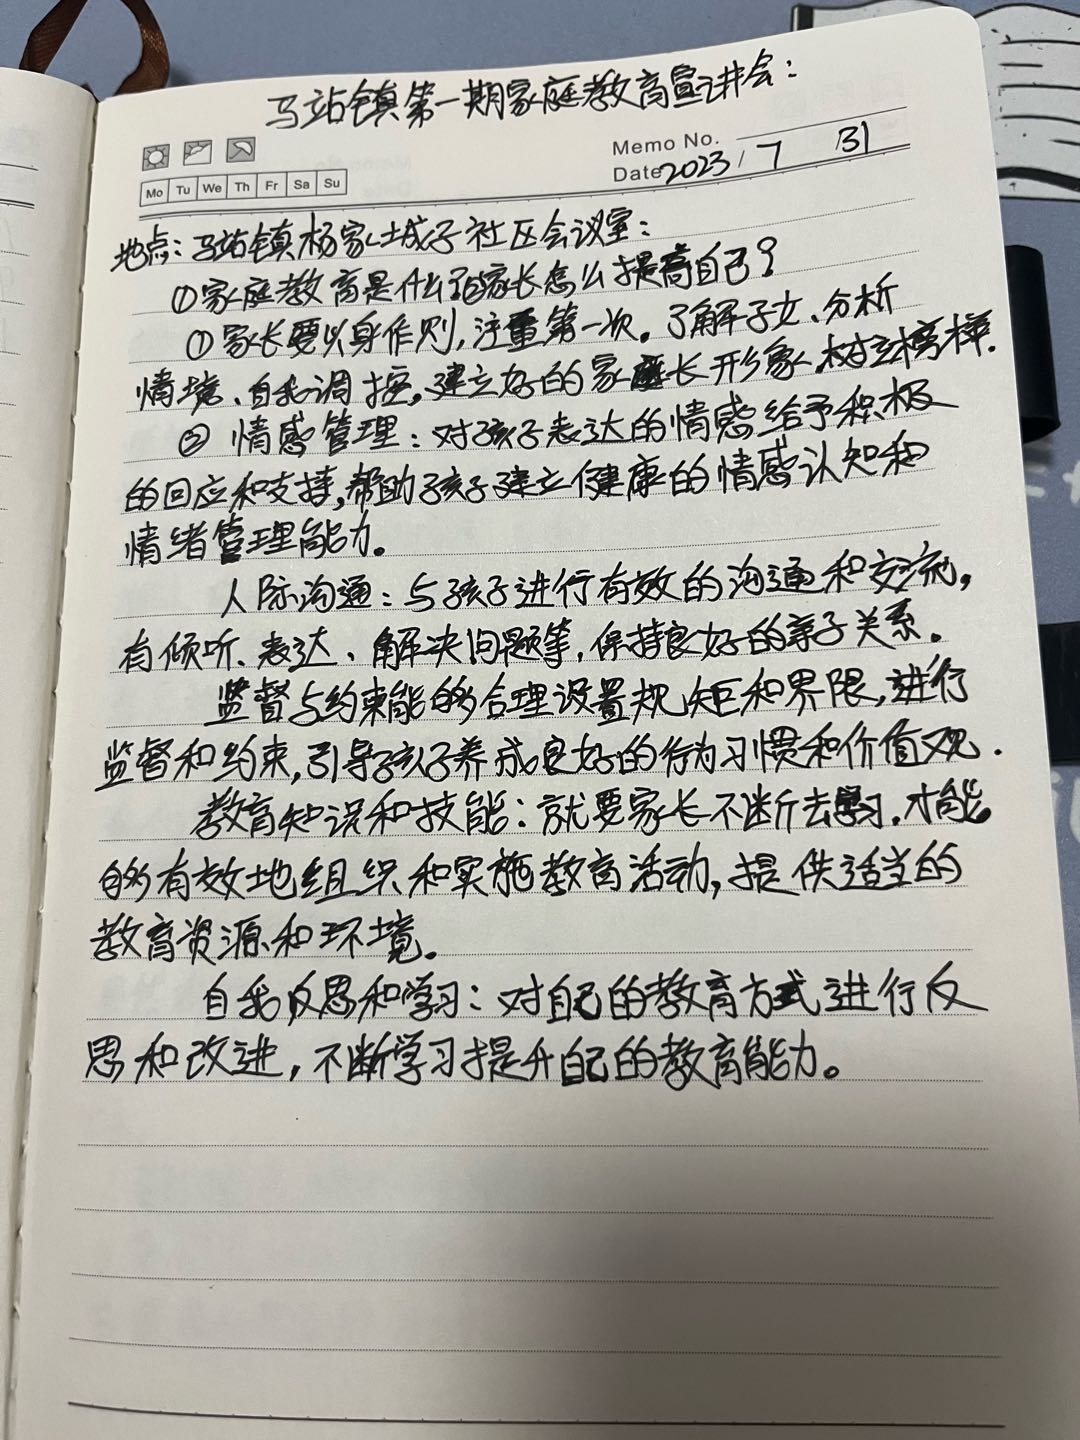 马站镇第一期家庭教育宣讲会：
Memo No.
Mo Tu We Th Fr Sa Su
Date 2023 / 7 / 31
地点：马站镇杨家城子社区会议室：
①家庭教育是什么？家长怎么提高自己？
①家长要以身作则，注重第一次。了解子女、分析
情境、自我调控，建立好的家庭长形象，树立榜样.
② 情感管理：对孩子表达的情感给予积极
的回应和支持，帮助孩子建立健康的情感认知和
情绪管理能力。
人际沟通：与孩子进行有效的沟通和交流，
有倾听、表达、解决问题等，保持良好的亲子关系。
监督与约束能够合理设置规矩和界限，进行
监督和约束，引导孩子养成良好的行为习惯和价值观.
教育知识和技能：就要家长不断去学习.才能
够有效地组织和实施教育活动，提供适当的
教育资源和环境。
自我反思和学习：对自己的教育方式进行反
思和改进，不断学习提升自己的教育能力。